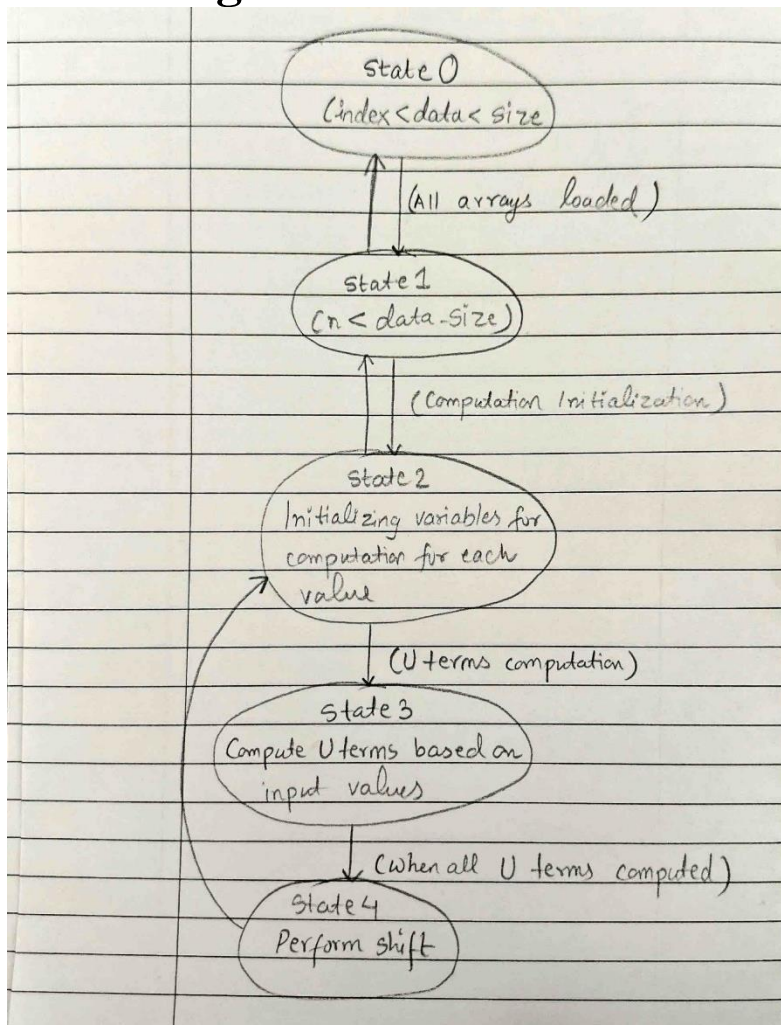 State 0
(index<data<size
(All arrays loaded)
State 1
(n < data-size)
(Computation Initialization)
State 2
Initializing variables for
computation for each
value
(U terms computation)
State 3
Compute U terms based on
input values
(when all U terms computed)
State 4
Perform shift